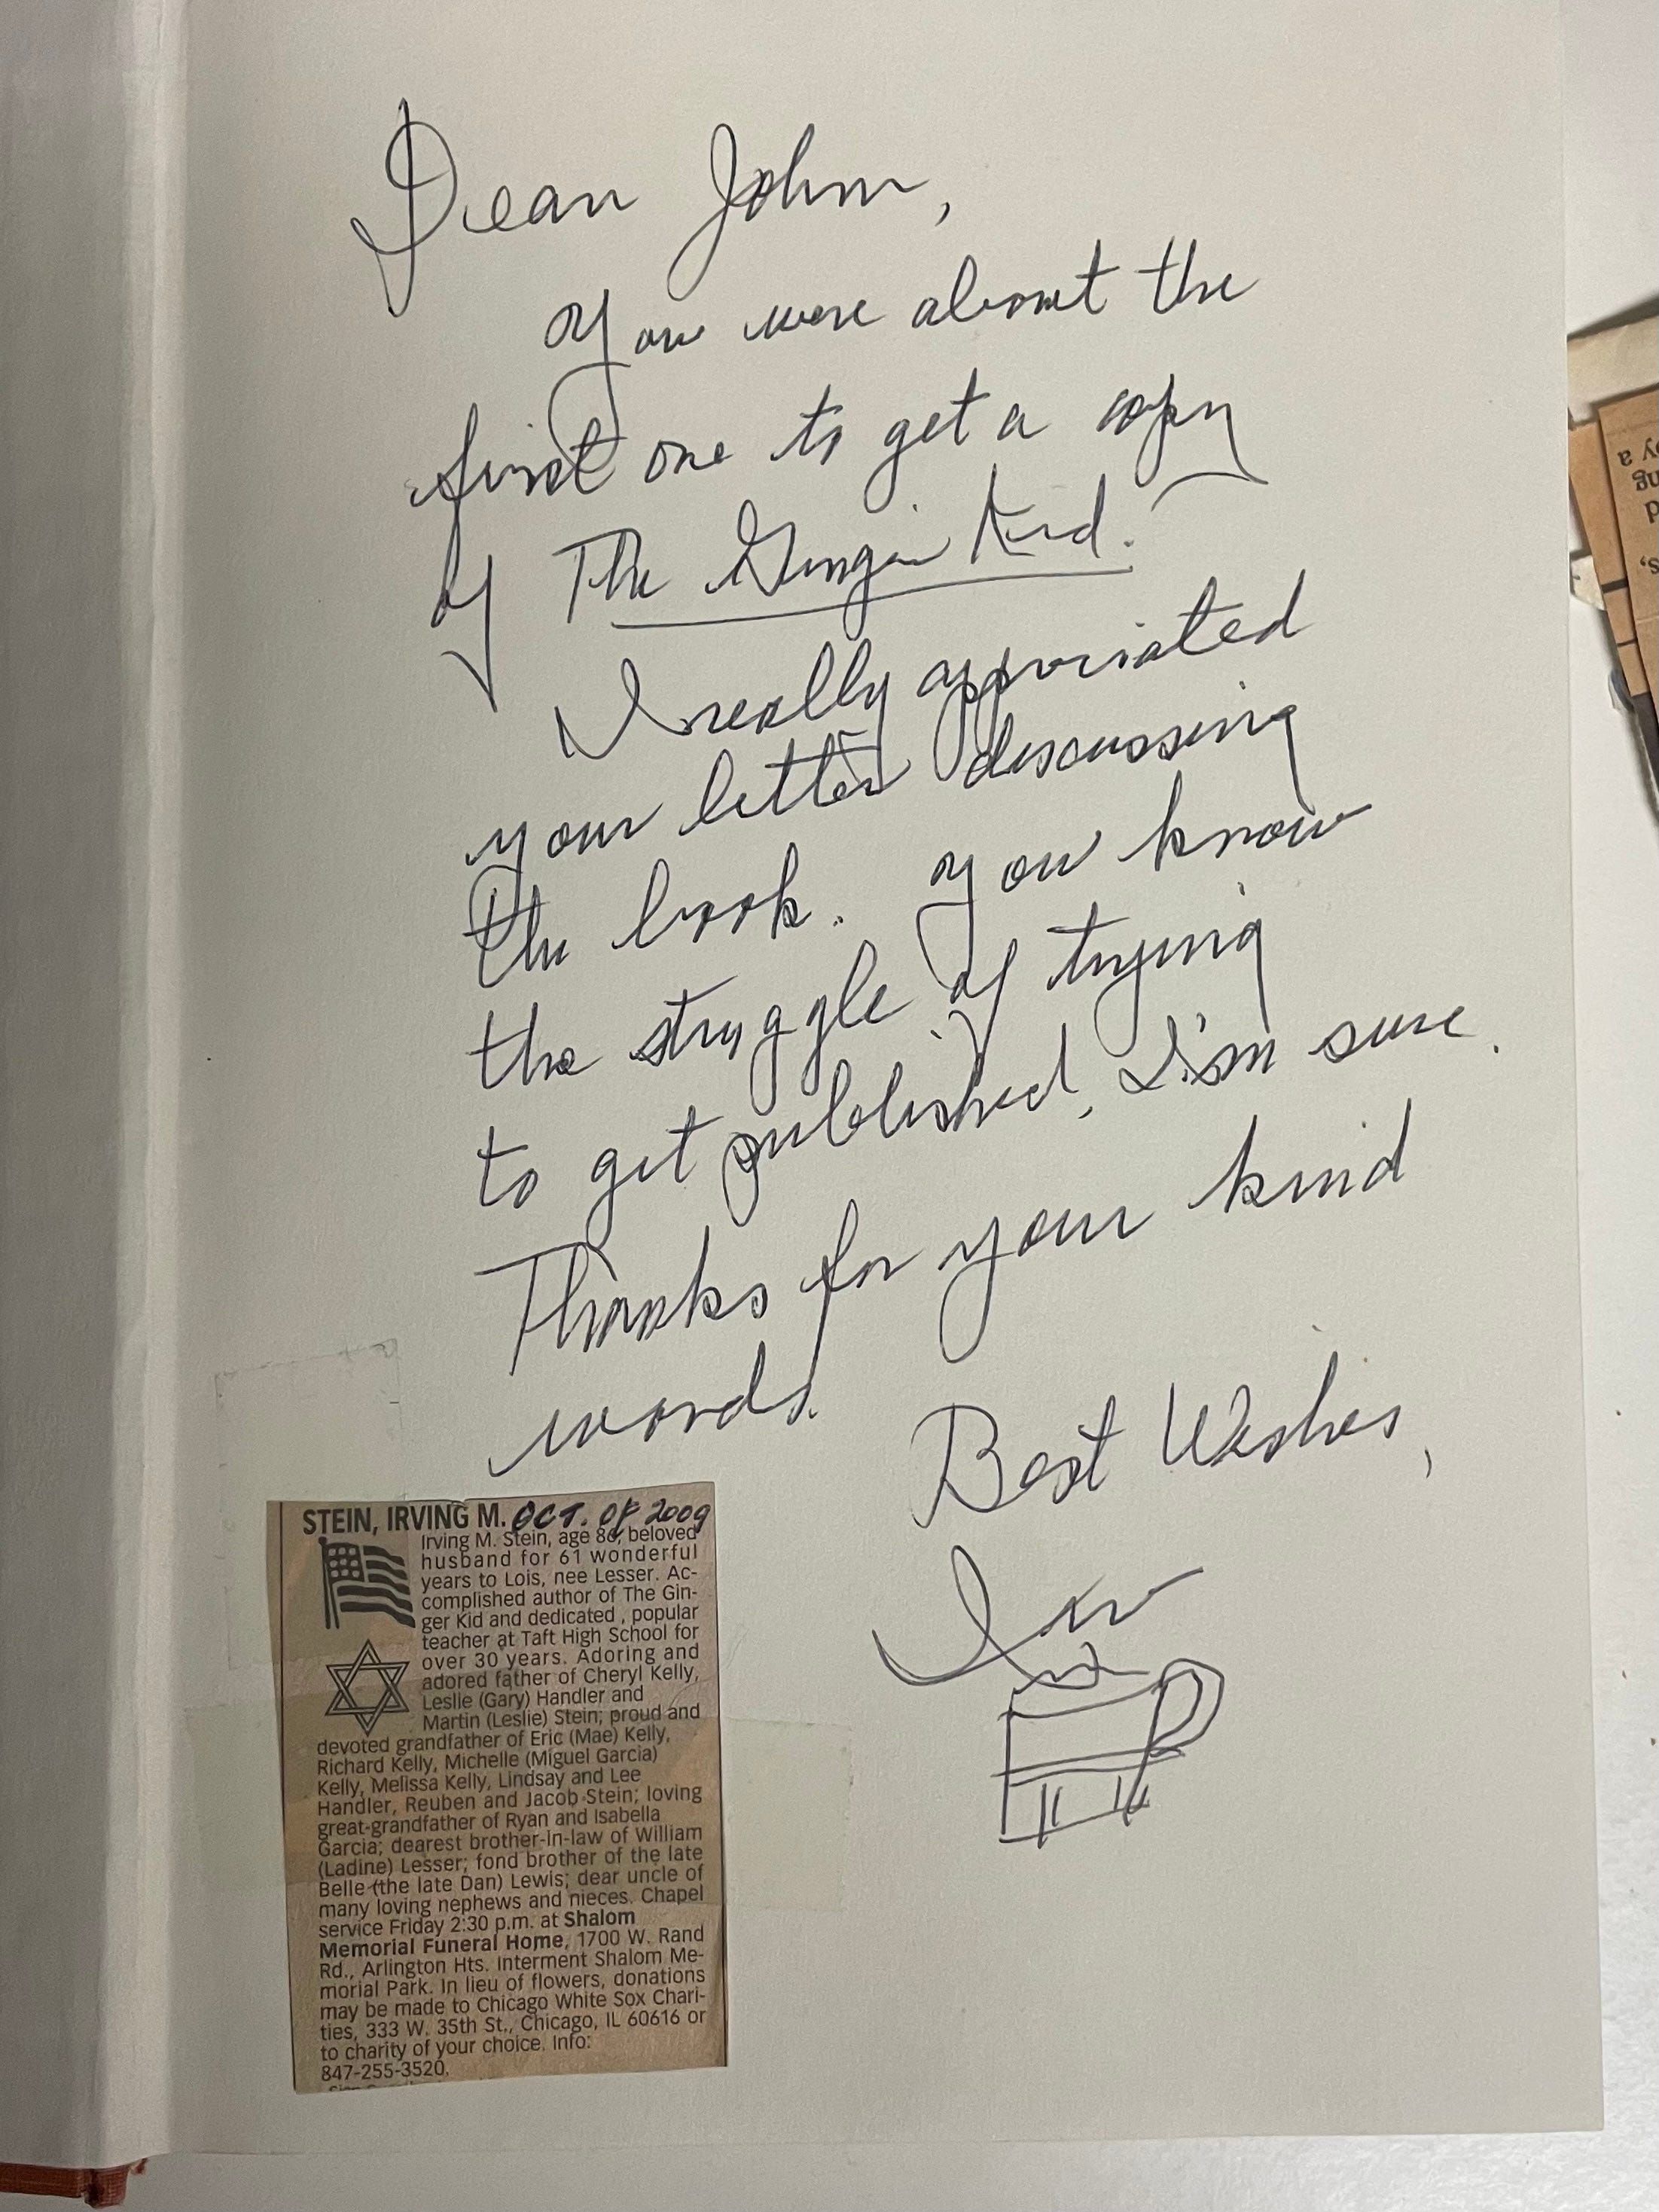 Dear John,
You were about the
first one to get a copy
of The Ginger Kid.
I really appriciated
your letter discussing
the book. You know
the struggle of trying
to get published, I'm sure.
Thanks for your kind
words.
Best Wishes,
Irv
STEIN, IRVING M. OCT. OF 2009
Irving M. Stein, age 86, beloved
husband for 61 wonderful
years to Lois, nee Lesser. Ac-
complished author of The Gin-
ger Kid and dedicated , popular
teacher at Taft High School for
over 30 years. Adoring and
adored father of Cheryl Kelly,
Leslie (Gary) Handler and
Martin (Leslie) Stein; proud and
devoted grandfather of Eric (Mae) Kelly,
Richard Kelly, Michelle (Miguel Garcia)
Kelly, Melissa Kelly, Lindsay and Lee
Handler, Reuben and Jacob Stein; loving
great-grandfather of Ryan and Isabella
Garcia; dearest brother-in-law of William
(Ladine) Lesser; fond brother of the late
Belle (the late Dan) Lewis; dear uncle of
many loving nephews and nieces. Chapel
service Friday 2:30 p.m. at Shalom
Memorial Funeral Home, 1700 W. Rand
Rd., Arlington Hts. Interment Shalom Me-
morial Park. In lieu of flowers, donations
may be made to Chicago White Sox Chari-
ties, 333 W. 35th St., Chicago, IL 60616 or
to charity of your choice. Info:
847-255-3520.